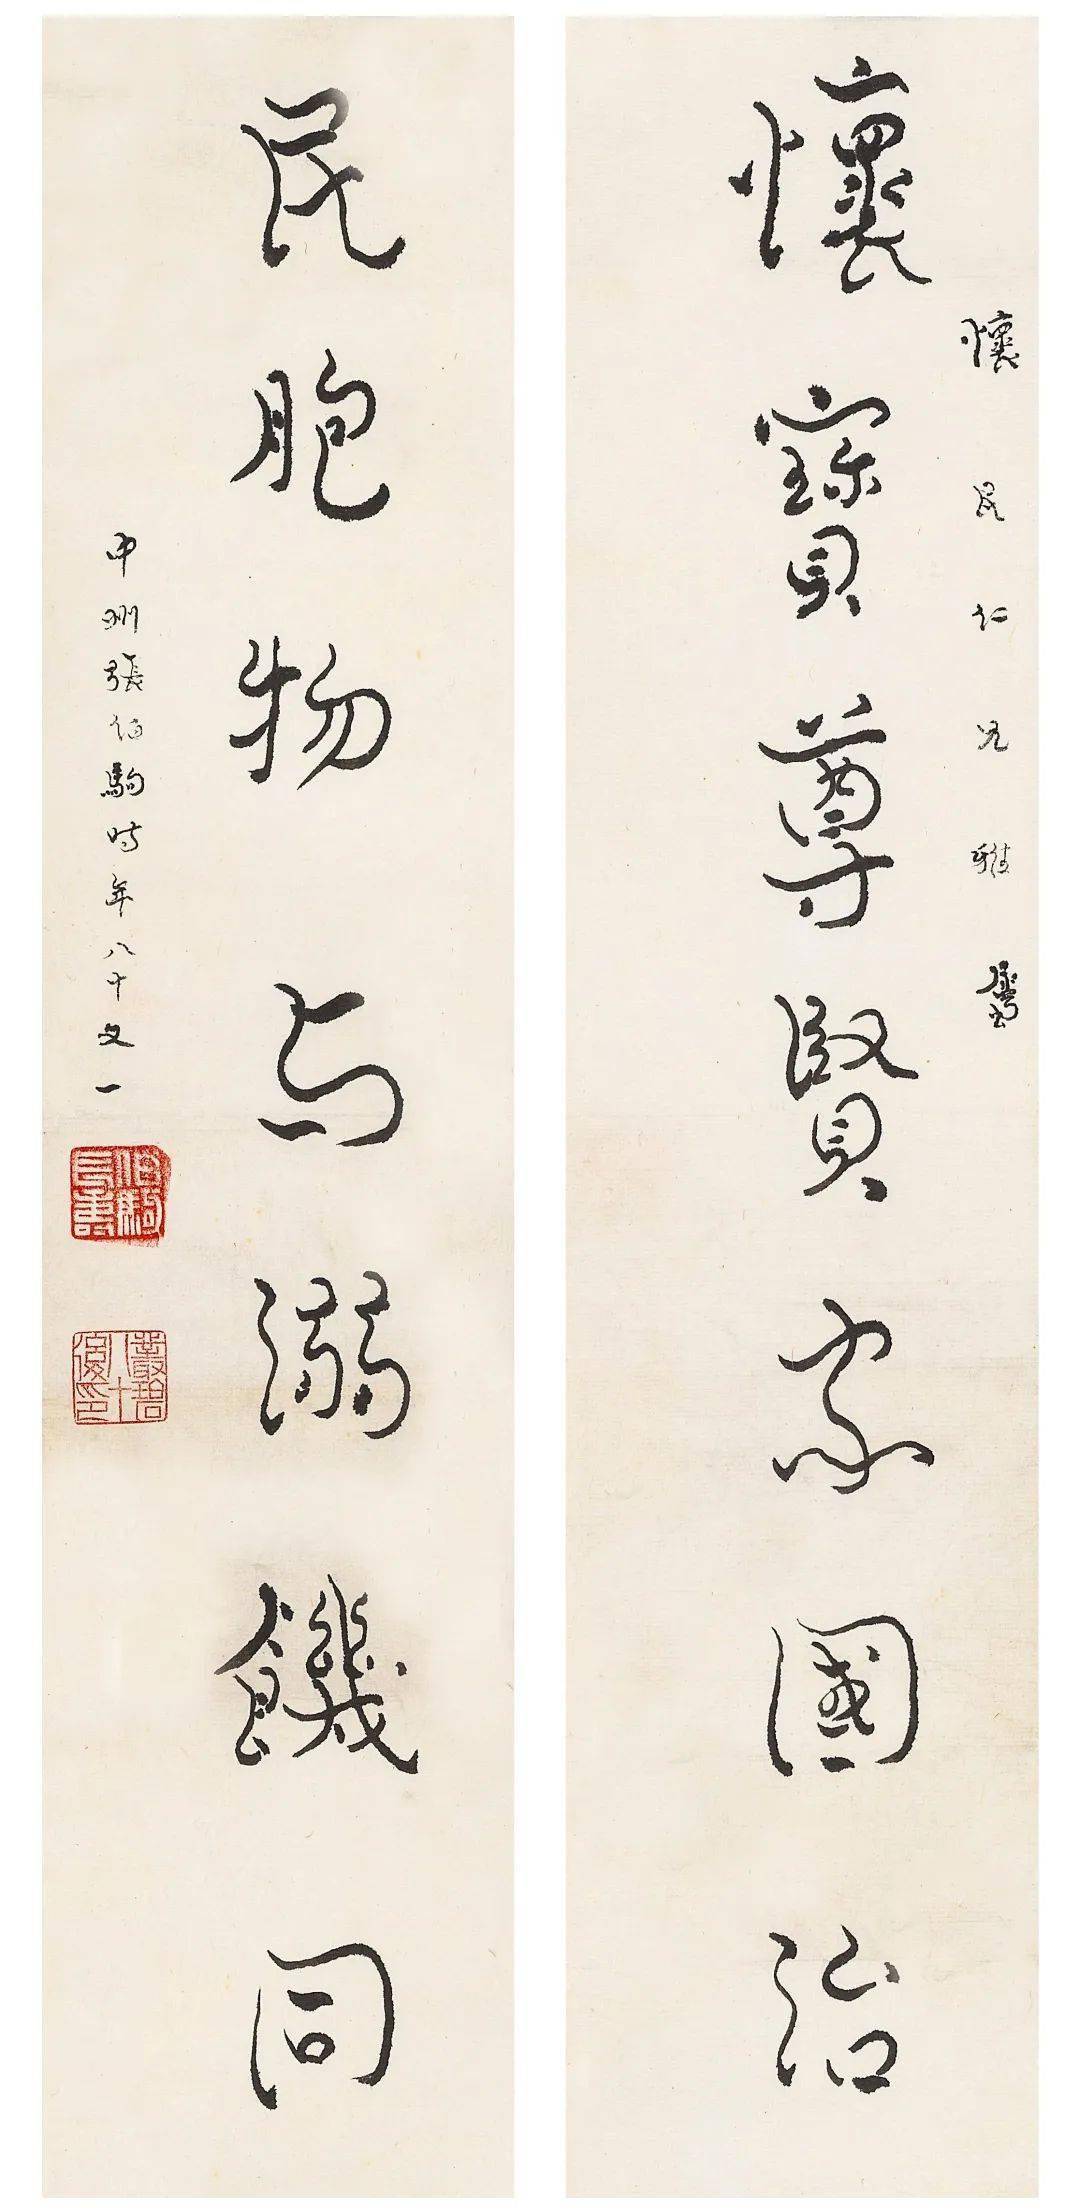 懷民仁兄雅
懷寶尊賢家國治
民胞物与溺饑同
中州張伯駒時年八十又一
伯駒長壽
叢碧八十後印